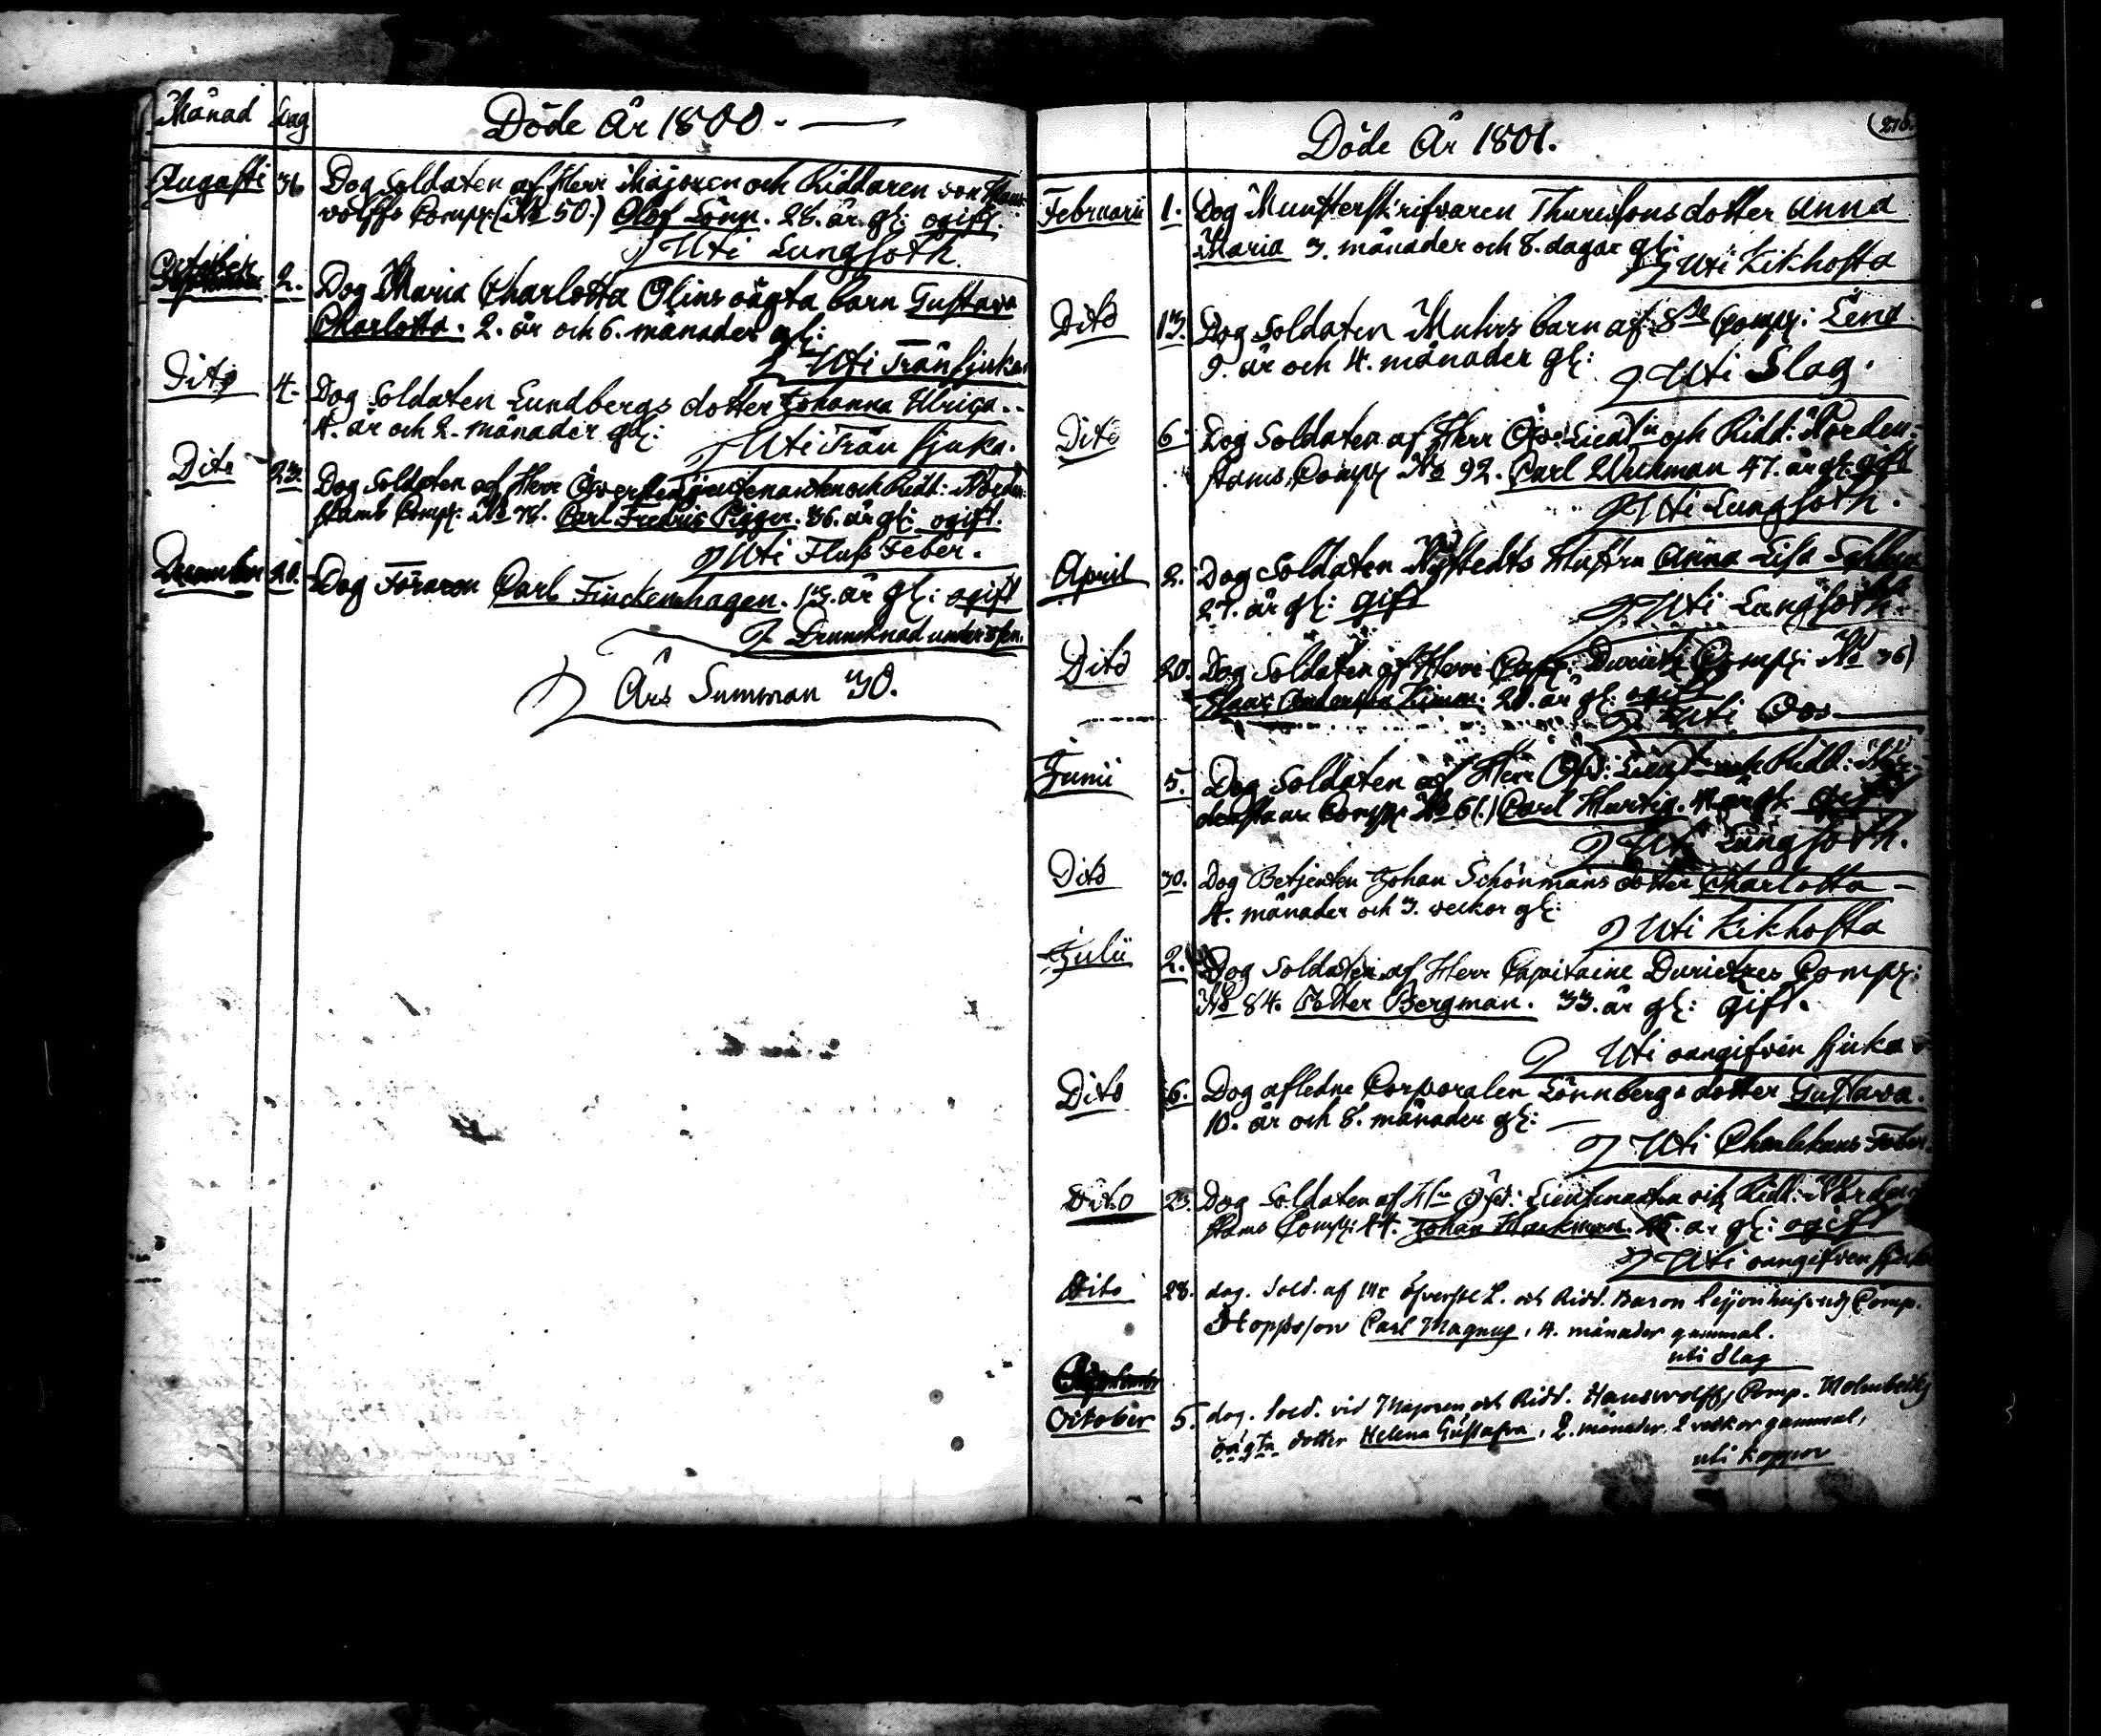 Månad Dag Döde År 1800.
Augusti 31 Dog Soldaten af Herr Majoren och Riddaren von Hans-
wolffs Comp: (No 50.) Olof Lönn. 28. år gl: ogift.
Uti Lungsoth.
October 2. Dog Maria Charlotta Olins oägta barn Gustava
Charlotta. 2. år och 6. månader gl:
Uti Trånsjuka
Dito 4. Dog Soldaten Lundbergs dotter Johanna Ulrica.
4. år och 2. månader gl:
Uti Trånsjuka.
Dito 23. Dog Soldaten af Herr Öfverstelieutenanten och Ridd: Norden-
stams Comp: No Carl Fredric Pigger. 36. år gl: ogift.
Uti Fluss Feber.
December 20. Dog Föraren Carl Finckenhagen. år gl: ogift
Druncknad under isen.
Års Summan 30.
Döde År 1801.
276.
Februarii 1. Dog Munsterskrifvaren Thuresons dotter Anna
Maria 3. månader och 8. dagar gl:
Uti Kikhosta
Dito 13. Dog Soldaten Muhrs barn af 8de Comp: Lena
9. år och 4. månader gl:
Uti Slag.
Dito 6. Dog Soldaten af Herr Öfv: Lieut: och Ridd: Norden-
stams Comp: No 92. Carl Wickman 47. år gl: gift
Uti Lungsoth.
April 2. Dog Soldaten Nystedts Hustru Anna Lisa
27. år gl: gift
Uti Lungsoth.
Dito 20. Dog Soldaten af Herr Capp: Durietz Comp: No 36)
Andersson 20. år gl: ogift
Uti
Junii 5. Dog Soldaten af Herr Öfv: Lieut: och Ridd: Nor-
denstams Comp: No 61.) Carl Hurtig. gift
Uti Lungsoth.
Dito 30. Dog Betjenten Johan Schönmans dotter Charlotta
4. månader och 3. veckor gl:
Uti Kikhosta
Julii 2. Dog Soldaten af Herr Capitaine Durietzes Comp:
No 84. Petter Bergman. 33. år gl: gift.
Uti oangifven sjuka
Dito 6. Dog afledne Corporalen Lönnbergs dotter Gustava.
10. år och 8. månader gl:
Uti Feber.
Dito 23. Dog Soldaten af Hr Öfv: Lieutenanten och Ridd: Norden-
stams Comp: 44. Johan år gl: ogift
Uti oangifven sjuka
Dito 28. dog. Sold. af Hr Öfverste L. och Ridd. Baron Leijonhufvuds Comp.
Hopps son Carl Magnus, 4. månader gammal.
uti Slag
October 5. dog. Sold. vid Majoren och Ridd. Hanswolffs Comp. Malmbergs
oägta dotter Helena Gustafva, 2. månader. 2 veckor gammal,
uti koppor